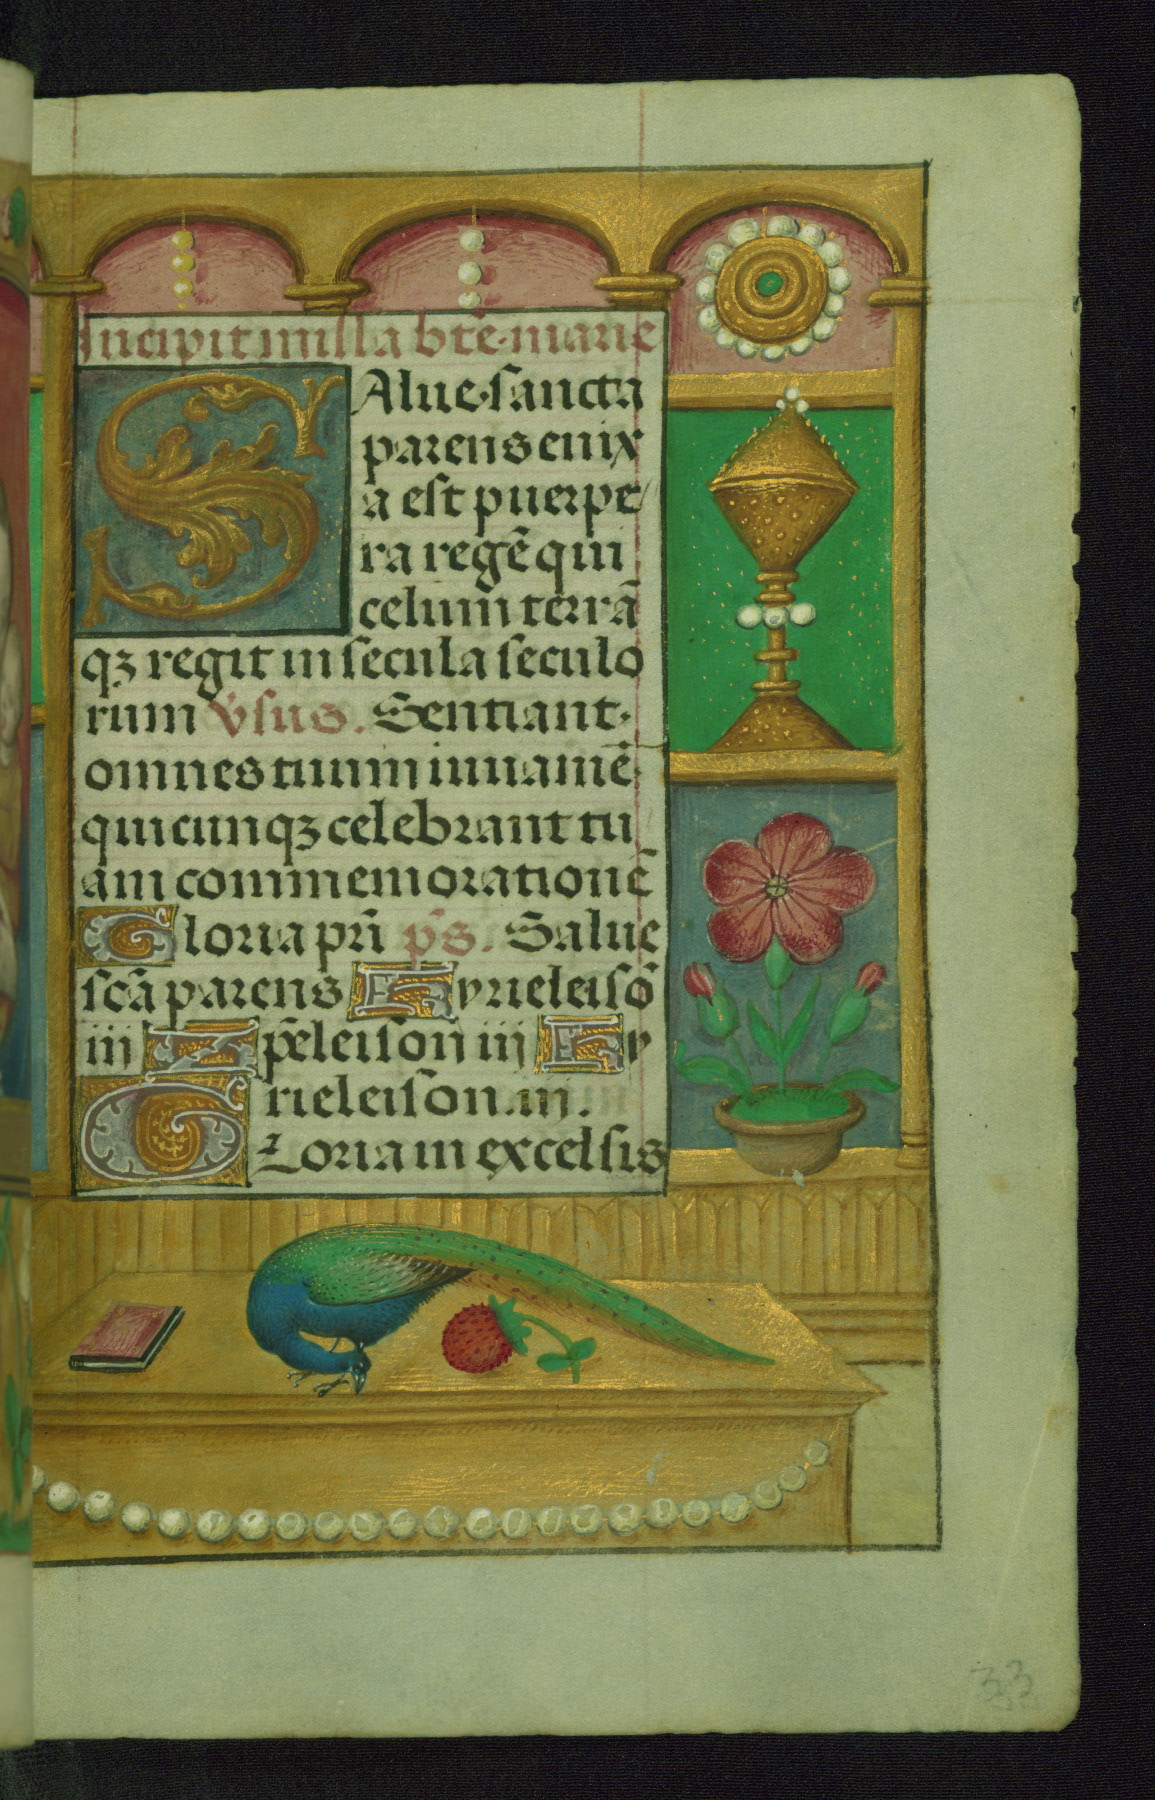 Incipit missa bt̄e·marie
SAlue·sancta
parens enix
a est puerpe/
ra regē qui
celum terrā
qꝫ regit in secula seculo
rum v̄sus. Sentiant·
omnes tuum iuuamē·
quicunqꝫ celebrant tu
am commemorationē
Gloria pr̄i p̄s. Salue
sc̄a parens Kyrieleisō
iij Xp̄eleison iij Ky
rieleison.iij.
Gloria in excelsis
33